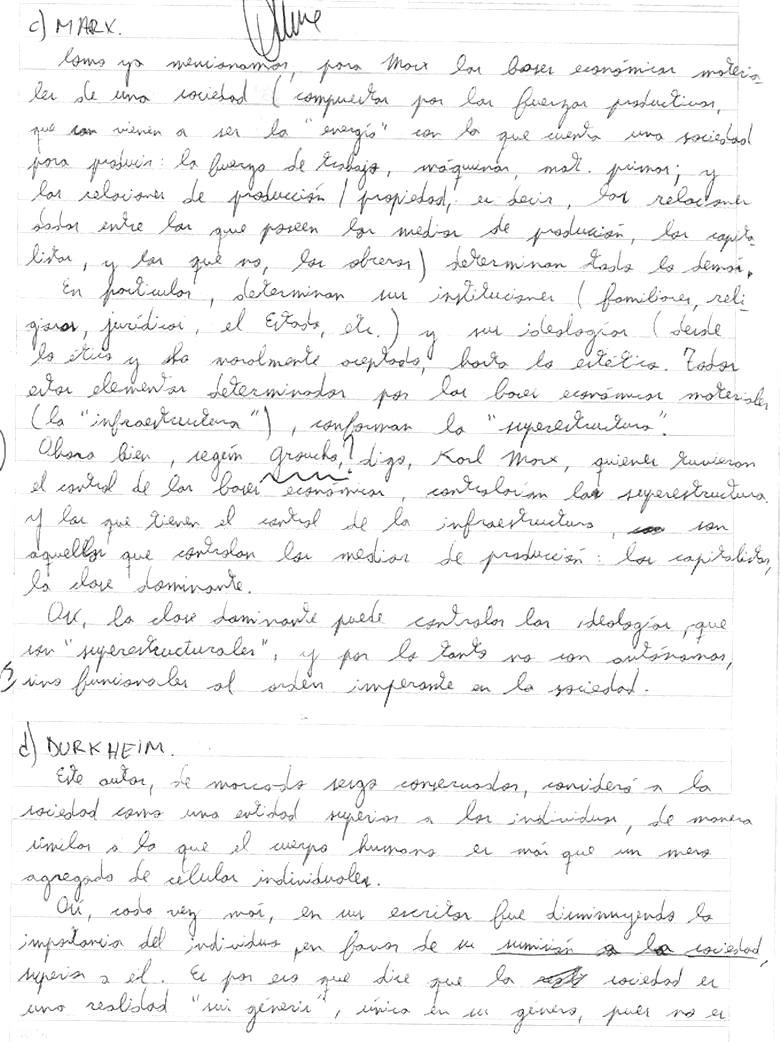 c) MARX.
Como ya mencionamos, para Marx las bases económicas materia-
les de una sociedad (compuestas por las fuerzas productivas,
que son vienen a ser la "energía" con la que cuenta una sociedad
para producir: la fuerza de trabajo, máquinas, mat. primas; y
las relaciones de producción / propiedad, es decir, las relaciones
dadas entre los que poseen los medios de producción, los capita-
listas, y los que no, los obreros) determinan todo lo demás.
En particular, determinan sus instituciones (familiares, reli-
giosas, jurídicas, el Estado, etc.) y sus ideologías (desde
la ética y lo moralmente aceptado, hasta la estética. Todos
estos elementos determinados por las bases económicas materiales
(la "infraestructura"), conforman la "superestructura".
Ahora bien, según Groucho,? digo, Karl Marx, quienes tuvieran
el control de las bases económicas, controlarían la superestructura.
Y los que tienen el control de la infraestructura, son
aquellos que controlan los medios de producción: los capitalistas,
la clase dominante.
Así, la clase dominante puede controlar las ideologías, que
son "superestructurales", y por lo tanto no son autónomas,
sino funcionales al orden imperante en la sociedad.
d) DURKHEIM.
Este autor, de marcado sesgo conservador, consideró a la
sociedad como una entidad superior a los individuos, de manera
similar a lo que el cuerpo humano es más que un mero
agregado de células individuales.
Así, cada vez más, en sus escritos fue disminuyendo la
importancia del individuo, en favor de su sumisión a la sociedad,
superior a él. Es por eso que dice que la sociedad es
una realidad "sui géneris", única en su género, pues no es